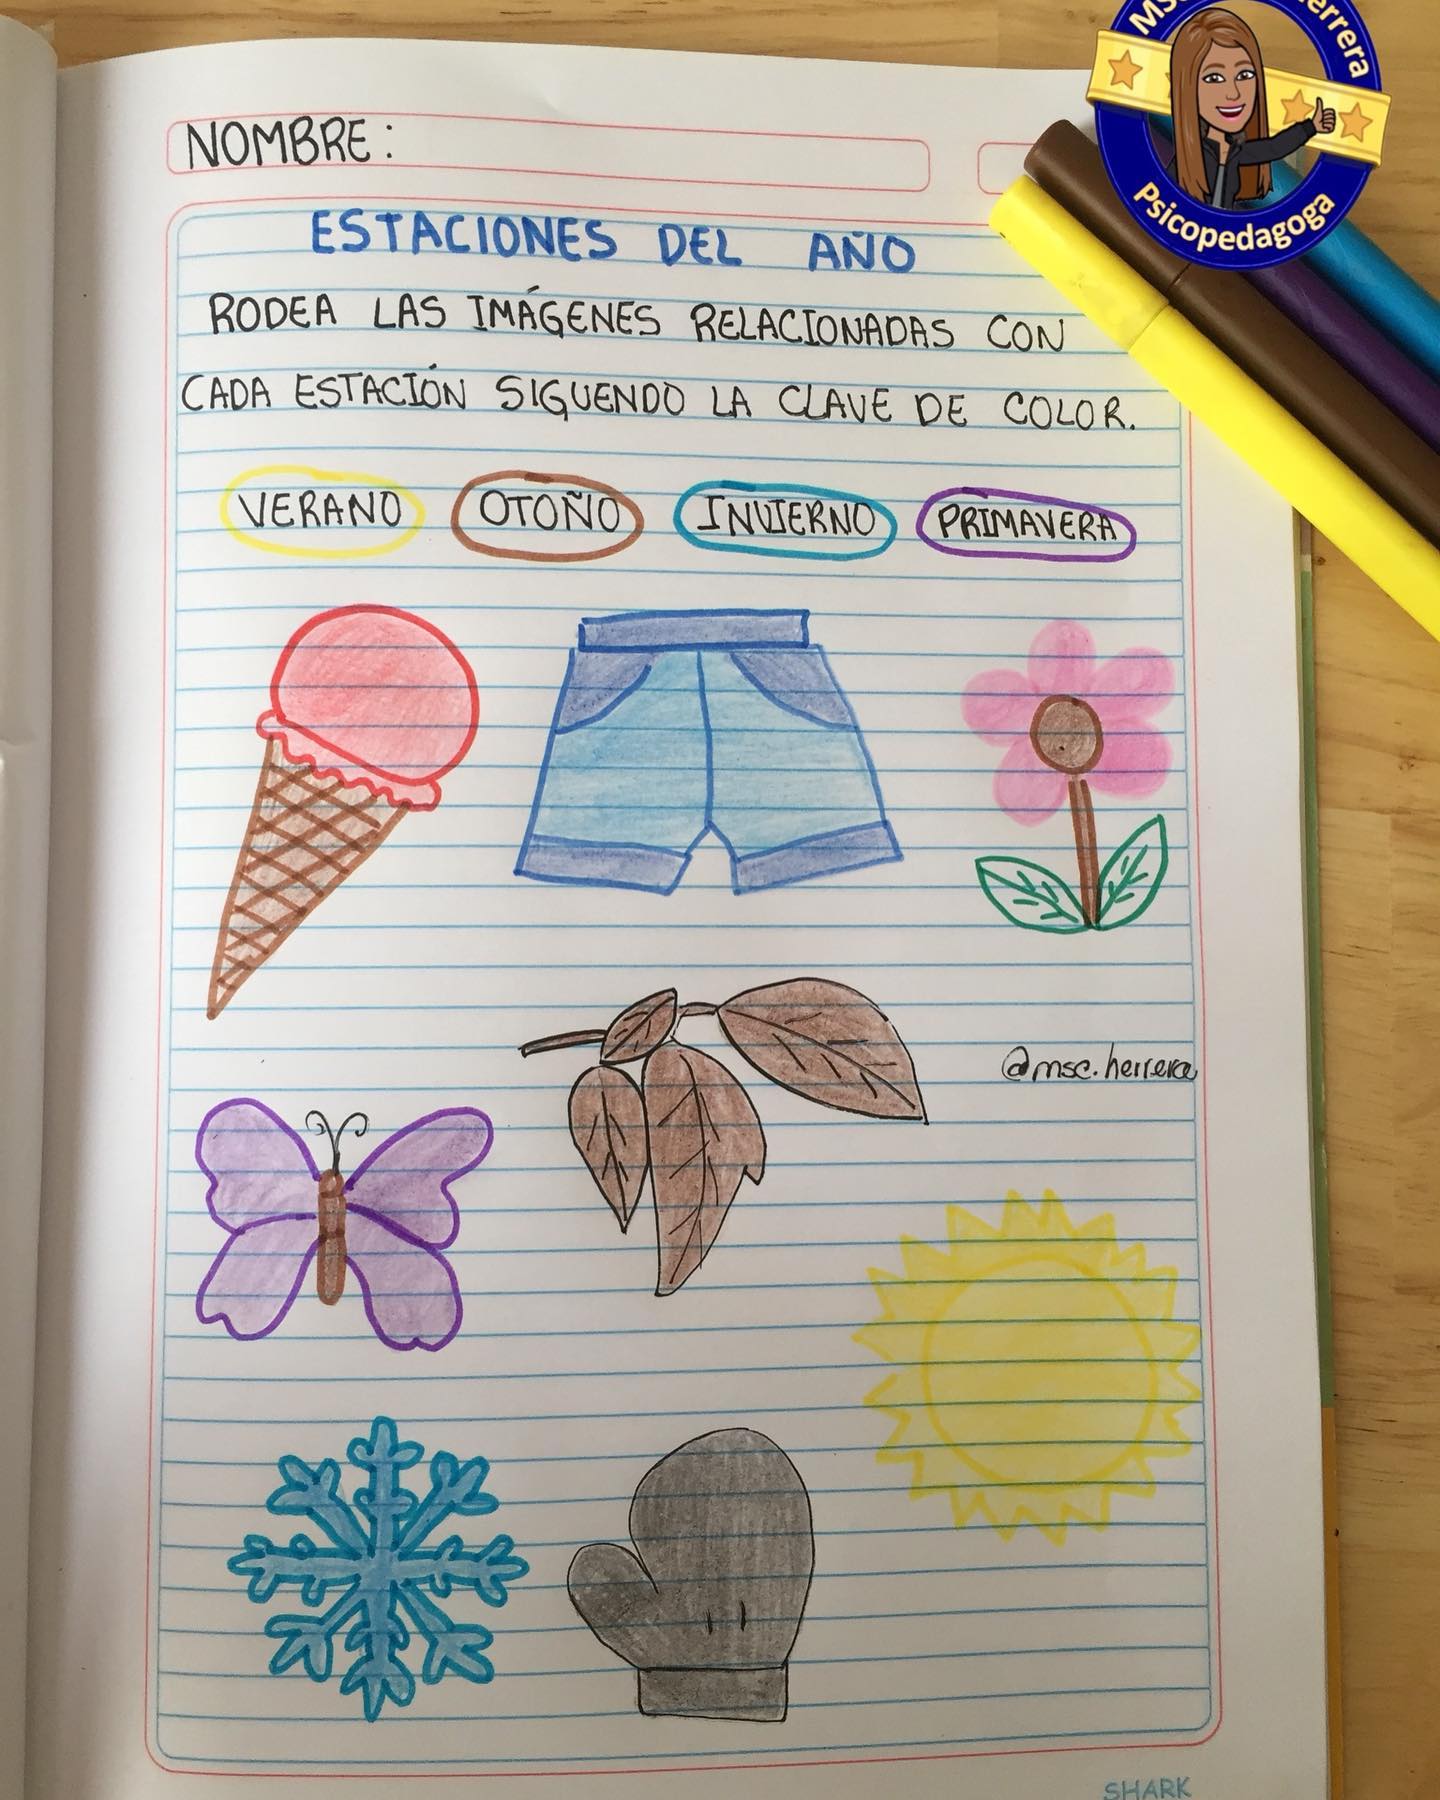 NOMBRE:
ESTACIONES DEL AÑO
RODEA LAS IMÁGENES RELACIONADAS CON
CADA ESTACIÓN SIGUENDO LA CLAVE DE COLOR.
VERANO OTOÑO INVIERNO PRIMAVERA
@msc.herrera
Psicopedagoga
SHARK